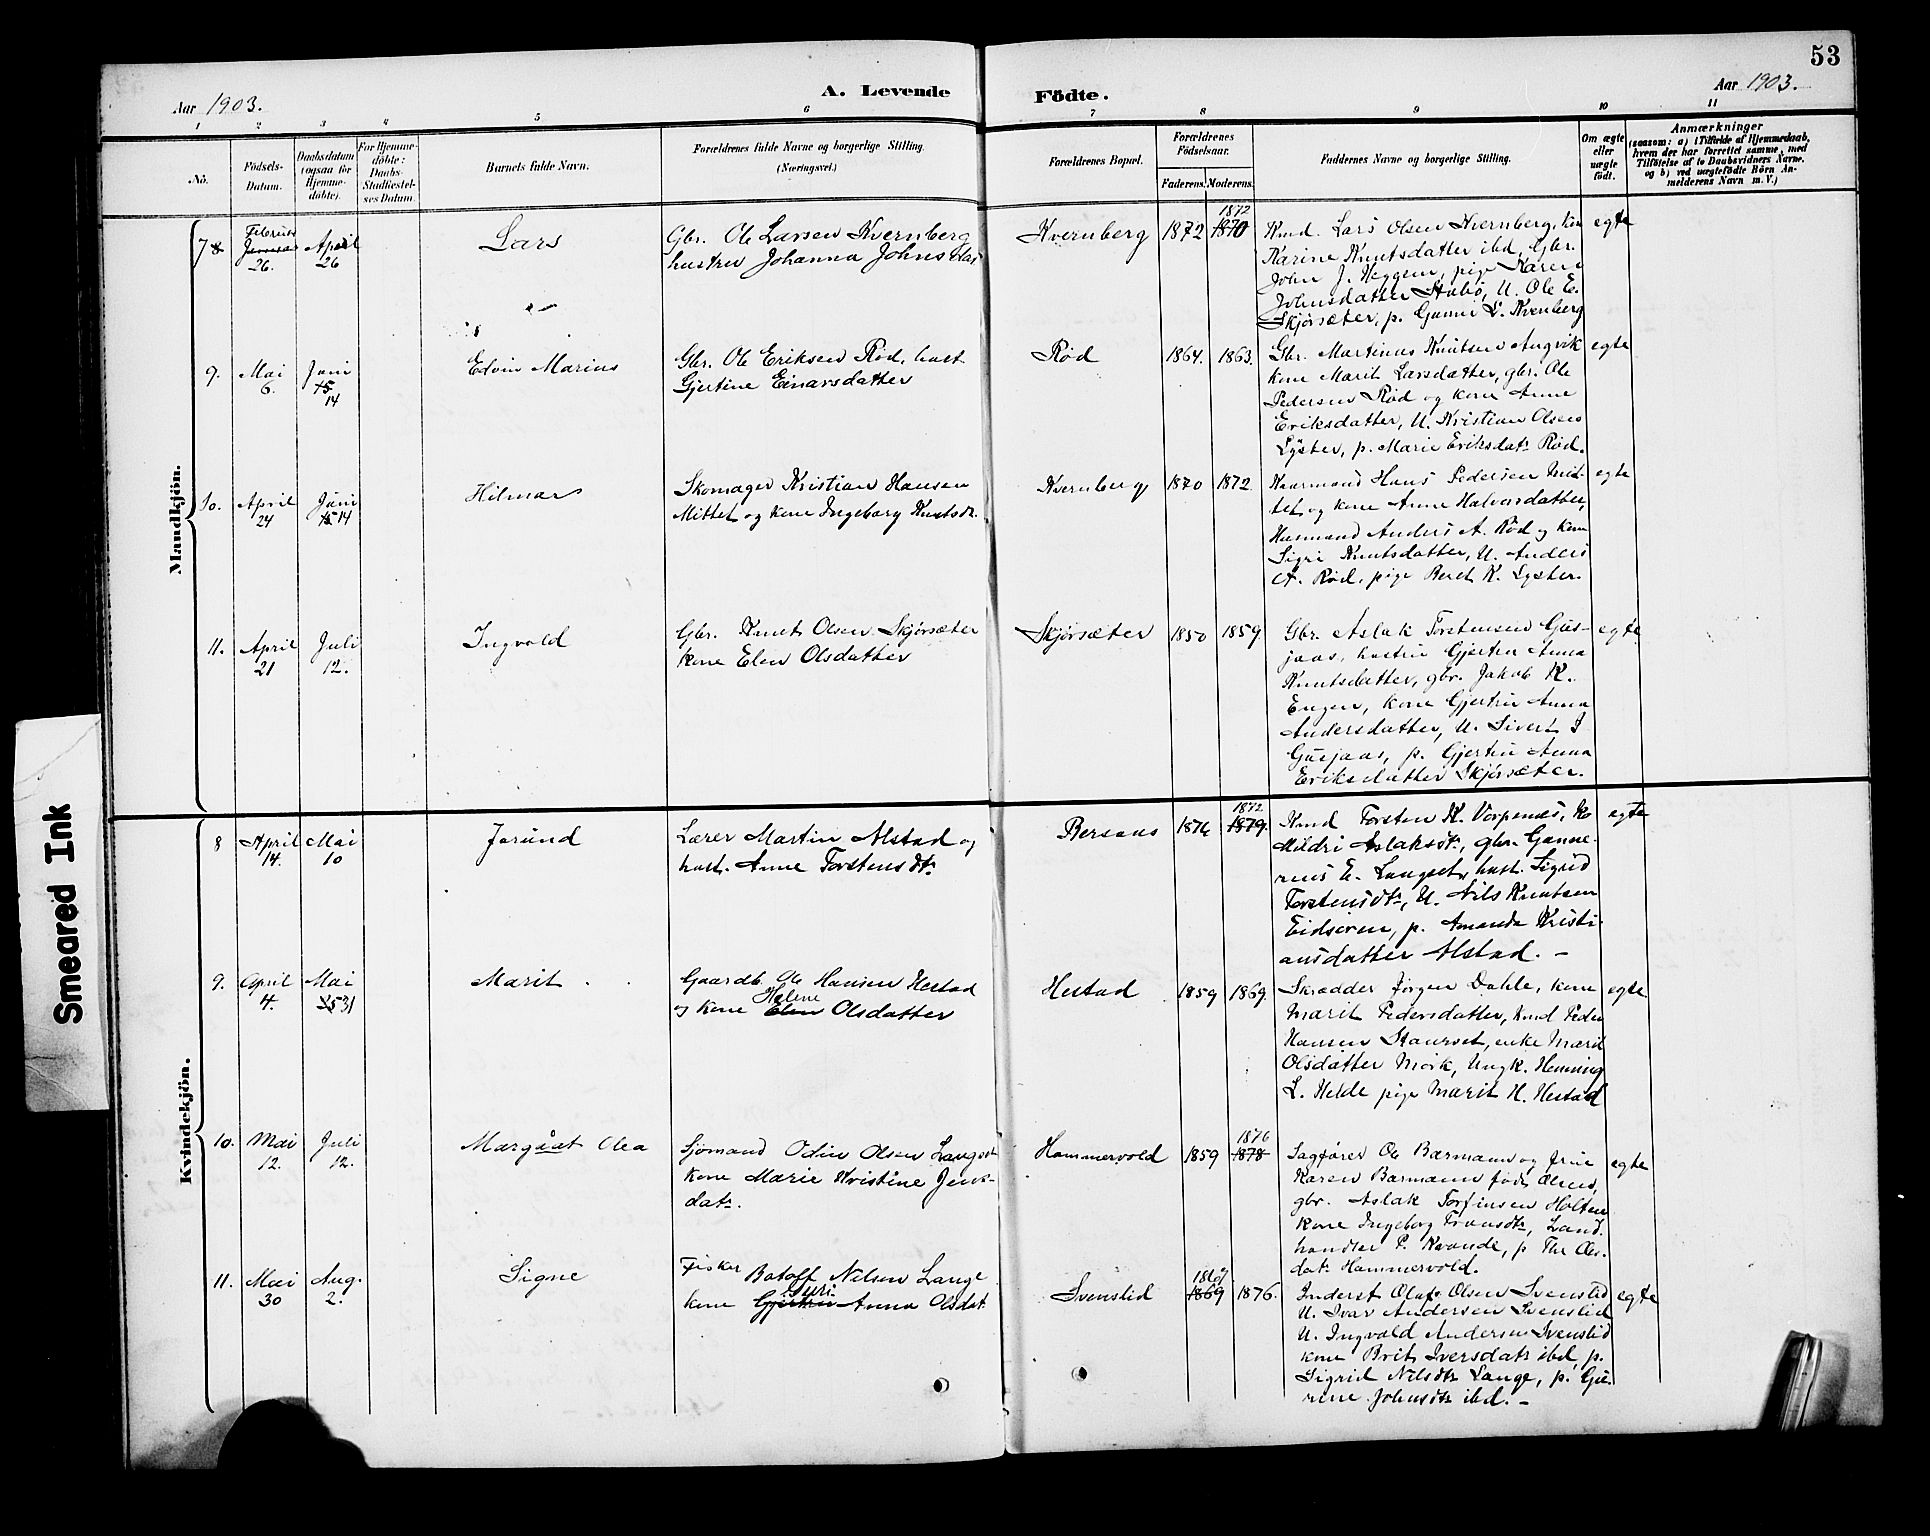 53
Aar 1903.
A. Levende
Födte.
Aar 1903.
1 2 3 4 5 6 7 8 9 10 11
No.
Födsels-
Datum.
Daabsdatum
(ogsaa for
Hjemme-
döbte).
For Hjemme-
döbte:
Daabs-
Stadfæstel-
ses Datum.
Barnets fulde Navn.
Forældrenes fulde Navne og borgerlige Stilling.
(Næringsvei.)
Forældrenes Bopæl.
Forældrenes
Födselsaar.
Faderens. Moderens.
Faddernes Navne og borgerlige Stilling.
Om ægte
eller
uægte
födt.
Anmærkninger
(saasom: a) i Tilfælde af Hjemmedaab,
hvem der har forrettet samme, med
Tilföielse af to Daabsvidners Navne.
og b) ved uægtefödte Börn An-
melderens Navn m. V.)
Mandkjön.
7
Februar
Januar
26.
April
26
Lars
Gbr. Ole Larsen Kvernberg
hustru Johanna Johns
Kvernberg
1872
1872
1870
Kmd. Lars Olsen Kvernberg, kone
Karine Knutsdatter ibd, Gbr.
John J. Heggem, pige Karen
Johnsdatter Stubø, U. Ole E.
Skjørsæter, p. L. Kvernberg
egte
9.
Mai
6.
Juni
15
14
Edvin Marius
Gbr. Ole Eriksen Rød, hust.
Gjertine Einarsdatter
Rød
1864. 1863.
Gbr. Martinus Knutsen Angvik
kone Marit Larsdatter, gbr. Ole
Pedersen Rød og kone Anne
Eriksdatter, U. Kristian Olsen
Lyster, p. Marie Eriksdatr Rød.
egte
10.
April
24
Juni
15 14
Hilmar
Skomager Kristian Hansen
Mittet og kone Ingeborg Knutsdr.
Kvernberg
1870 1872
Kaarmand Hans Pedersen Mit-
tet og kone Anne Halvorsdatter,
Husmand Anders A. Rød og kone
Sigri Knutsdatter, U. Anders
A. Rød, pige Beret K. Lyster.
egte
11.
April
21
Juli
12.
Ingvald
Gbr. Knut Olsen Skjørsæter
kone Elen Olsdatter
Skjørsæter
1850 1859
Gbr. Aslak Torstensen Gus-
jaas, hustru Gjertru Anna
Knutsdatter, gbr. Jakob K.
Engen, kone Gjertru Anna
Andersdatter, U. Sivert I
Gusjaas, p. Gjertru Anna
Eriksdatter Skjørsæter.
egte
Kvindekjön.
8
April
14.
Mai
10
Jorund
Lærer Martin Alstad og
hust. Anne Torstensdtr
Bersaas
1876
1872
1879.
Kmd Torsten K. Vorpenes, ko
Mildri Aslaksdtr, gbr. Gunne-
rius E. Langset, hust. Sigrid
Torstensdtr, U. Nils Knutsen
Eidsøren, p. Amanda Kristi-
ansdatter Alstad. –
egte
9.
April
4.
Mai
25 31
Marit
Gaardb. Ole Hansen Hestad
og kone Helene Elen Olsdatter
Hestad
1859 1869.
Skrædder Jørgen Dahle, kone
Marit Pedersdatter, Kmd Peder
Hansen Staurset, enke Marit
Olsdatter Mørk, Ungk. Henning
L. Helde pige Marit H. Hestad
egte
10.
Mai
12.
Juli
12.
Margrät Olea
Sjømand Odin Olsen Langset
kone Marie Kristine Jens-
datr.
Hammervold
1859
1876
1878
Sagfører Ole Bærmann og frue
Karen Bærmann født Olsen,
gbr. Aslak Torfinsen Holten
kone Ingeborg Fransdtr, Land
handler P. Kvande, p Ols-
datr Hammervold.
egte
11.
Mai
30
Aug.
2.
Signe
Fisker Botolf Nilsen Lange
kone Guri Gjertru Anna Olsdat
Svenslid
1869
1876.
Inderst Olaf Olsen Svenslid
U. Ivar Andersen Svenslid
U. Ingvald Andersen Svenslid
kone Brit Iversdatr ibd, p.
Sigrid Nilsdtr Lange, p. Gu-
rine Johnsdtr ibd. –
egte
Smeared Ink